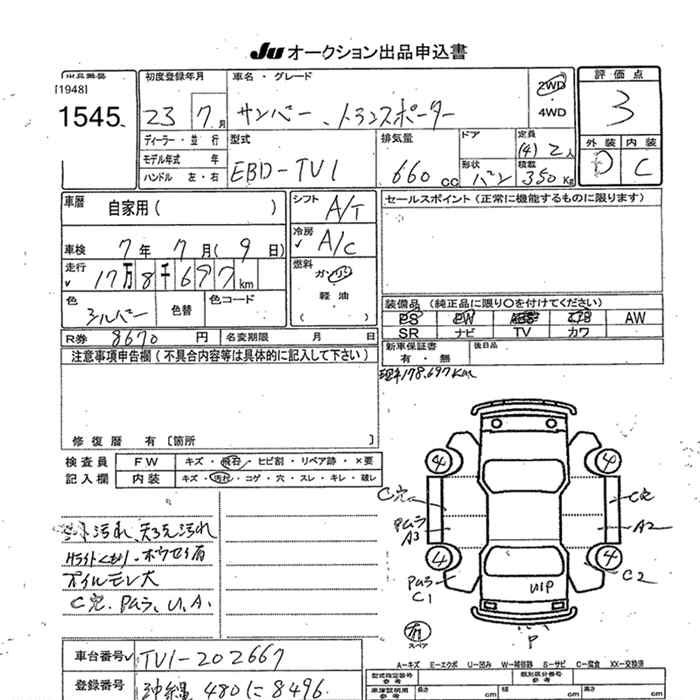 Ju オークション出品申込書
出品番号 初度登録年月 車名・グレード 2WD 評価点
[1948]
1545 23 7月 サンバー、トランスポーター 4WD 3
ディーラー・並行 型式 排気量 ドア 定員 外装 内装
モデル年式 年 (4) 2人
ハンドル 左・右 EBD-TV1 660cc 形状 バン 積載 350Kg D C
車歴 自家用( ) シフト A/T セールスポイント(正常に機能するものに限ります)
車検 7年7月(9日) 冷房 A/C
走行 17万8千697km 燃料 ガソリン
軽油
( )
色 シルバー 色替 色コード 装備品(純正品に限り○を付けてください)
PS PW AW
SR ナビ TV カワ
R券 8670円 名変期限 月 日 新車保証書 後日品
有・無
注意事項申告欄(不具合内容等は具体的に記入して下さい)
178,697Km
修復歴 有〔箇所 〕
検査員 FW キズ・飛石・ヒビ割・リペア跡・×要
記入欄 内装 キズ・汚れ・コゲ・穴・スレ・キレ・破レ
4 4
C穴 C穴
シート汚れ、天うえ汚れ
Pムラ
A3 A2
ライトくもり・ホウセキ有
オイルモレ大
4 4
Pムラ C1 C2
C穴、Pムラ、U、A、
UP
P
スペア
車台番号 TV1-202667
A-キズ E-エクボ U-凹み W-補修跡 S-サビ C-腐食 XX-交換済
登録番号 沖縄 480 に 8496
型式指定番号 参考 類別区分番号 参考
車庫証明用 参考 長さ cm 幅 cm 高さ cm